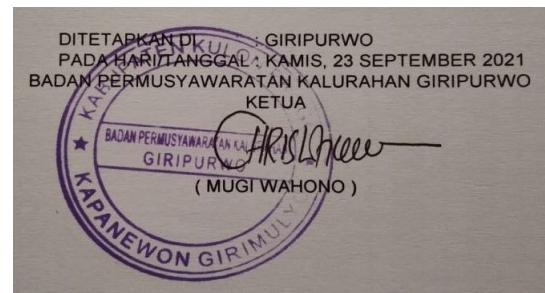 DITETAPKAN DI : GIRIPURWO
PADA HARI/TANGGAL : KAMIS, 23 SEPTEMBER 2021
BADAN PERMUSYAWARATAN KALURAHAN GIRIPURWO
KETUA
KABUPATEN KULO
BADAN PERMUSYAWARATAN KAL
GIRIPURWO
( MUGI WAHONO )
KAPANEWON GIRIMULYO